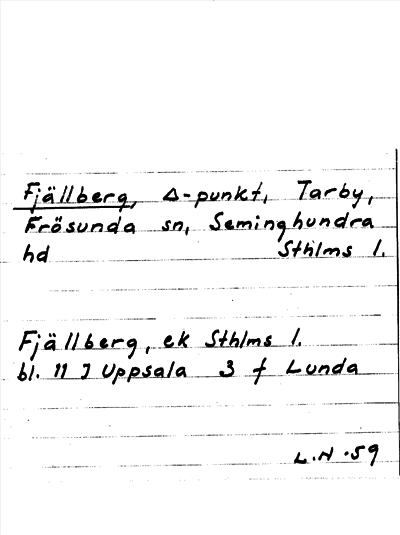 Fjällberg, Δ-punkt, Tarby,
Frösunda sn, Seminghundra
hd Sthlms l.
Fjällberg, ek Sthlms l.
bl. 11 I Uppsala 3 f Lunda
L.N. 59